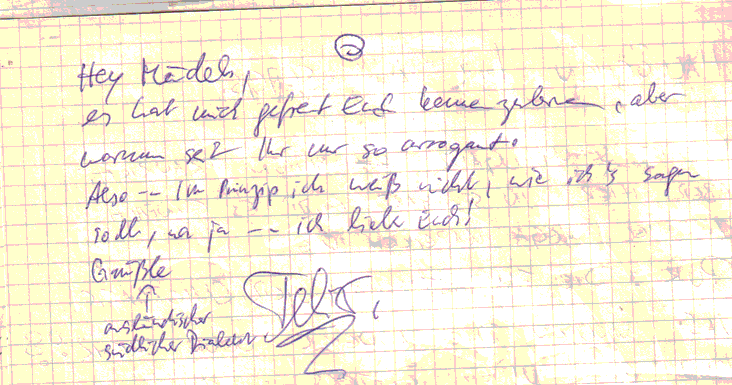 ②
Hey Mädels,
es hat mich gefret Euch kennenzulernen, aber
warum seit Ihr nur so arrogant.
Also -- Im Prinzip ich weiß nicht, wie ich's sagen
soll, na ja -- ich liebe Euch!
Grüßle
ausländischer
südlicher Dialekt.
Felix